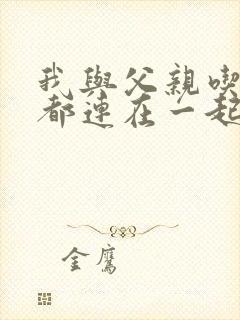 我與父親喫
都連在一起
金鷹